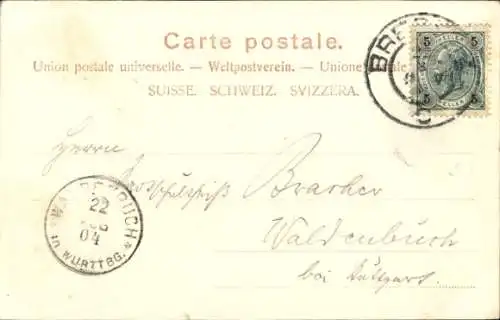 Carte postale.
Union postale universelle. — Weltpostverein. — Unione postale
SUISSE. SCHWEIZ. SVIZZERA.
BRE
5 5
5 HELLER 5
Herrn
Bracher
Waldenbuch
bei Stuttgart.
WA DENBUCH
22
04
IN WÜRTTBG.